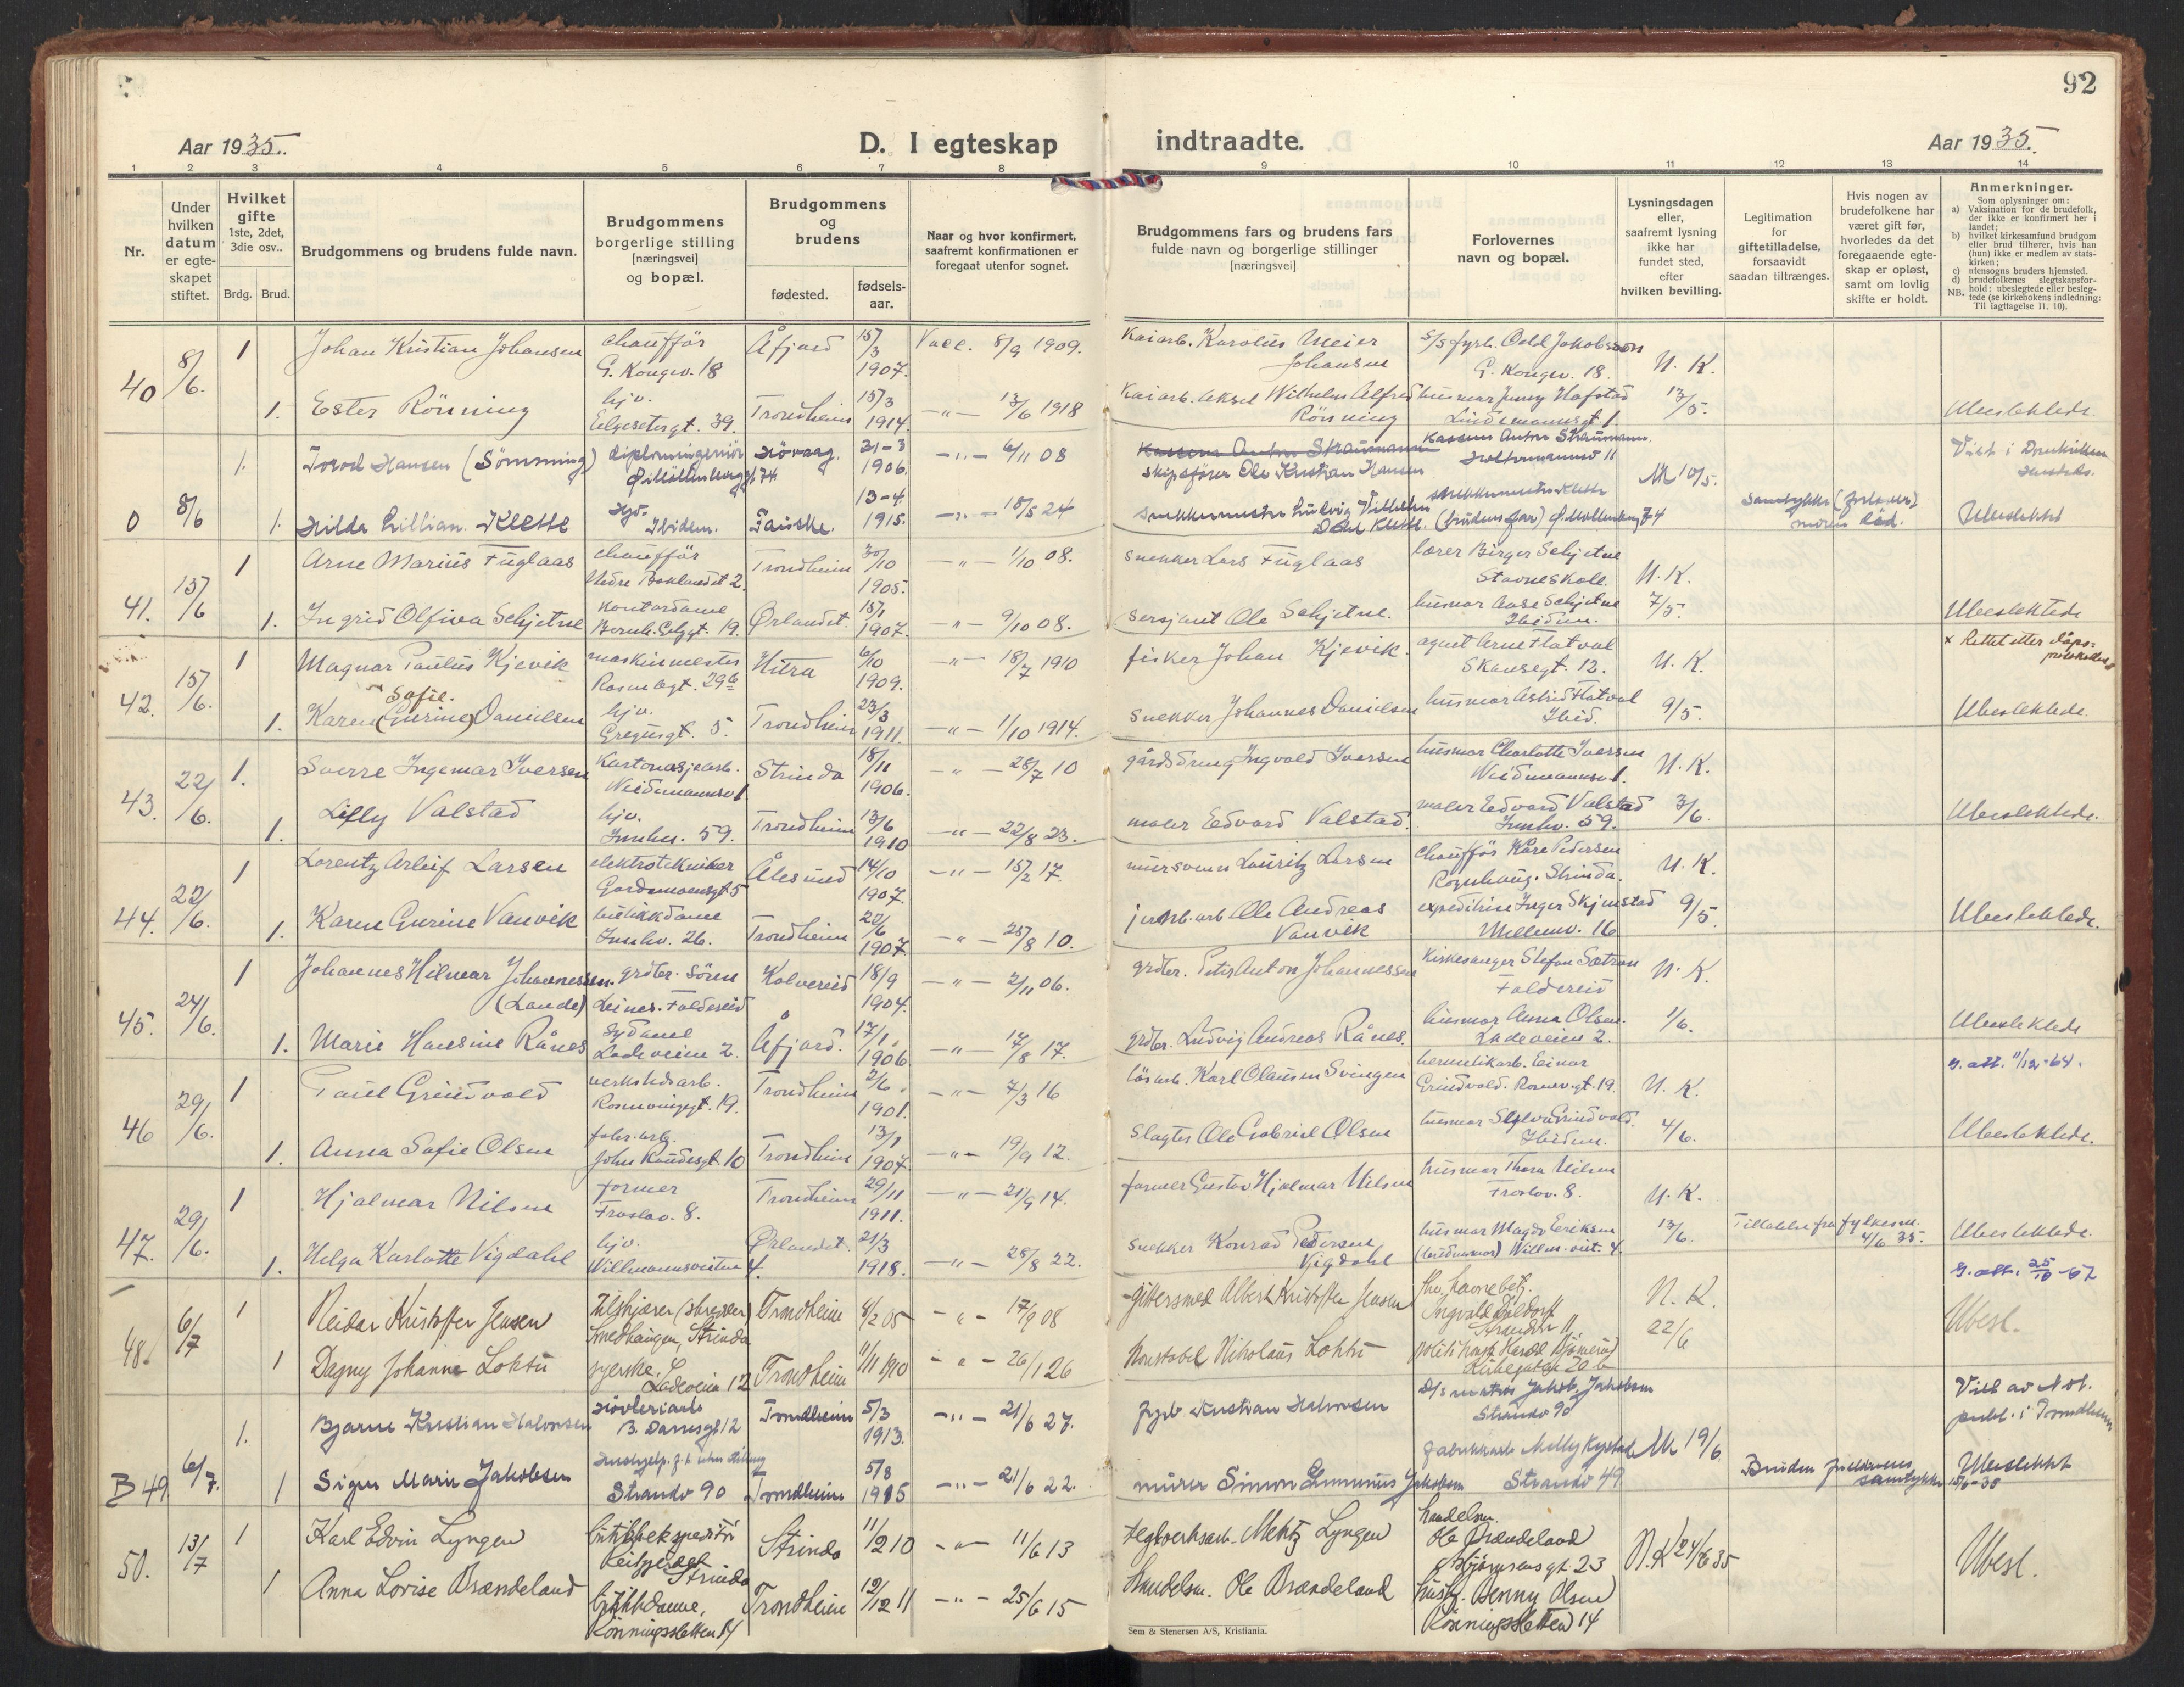 92
Aar 1935.
D. I egteskap indtraadte.
Aar 1935.
1 2 3 4 5 6 7 8 9 10 11 12 13 14
Nr.
Under hvilken datum er egte- skapet stiftet.
Hvilket gifte 1ste, 2det, 3die osv..
Brdg. Brud.
Brudgommens og brudens fulde navn.
Brudgommens borgerlige stilling [næringsvei] og bopæl.
Brudgommens og brudens
fødested.
fødsels- aar.
Naar og hvor konfirmert, saafremt konfirmationen er foregaat utenfor sognet.
Brudgommens fars og brudens fars fulde navn og borgerlige stillinger [næringsvei]
Forlovernes navn og bopæl.
Lysningsdagen eller, saafremt lysning ikke har fundet sted, efter hvilken bevilling.
Legitimation for giftetilladelse, forsaavidt saadan tiltrænges.
Hvis nogen av brudefolkene har været gift før, hvorledes da det foregaaende egte- skap er opløst, samt om lovlig skifte er holdt.
Anmerkninger.
Som oplysninger om:
a) Vaksination for de brudefolk, der ikke er konfirmert her i landet;
b) hvilket kirkesamfund brudgom eller brud tilhører, hvis han (hun) ikke er medlem av stats- kirken;
c) utensogns bruders hjemsted.
d) brudefolkenes slegtskapsfor- hold: ubeslegtede eller besleg- tede (se kirkebokens indledning: Til iagttagelse II. 10).
NB.
40 8/6. 1 Johan Kristian Johansen chaufför G. Kongev. 18 Åfjord 15/3 1907. Vacc. 8/9 1909. Kaiarb. Karolius Meier Johansen S/S fyrb. Odd Jakobsson G. Kongev. 18. N. K.
1. Ester Rönning hjv. Elgesetergt. 39. Trondheim 15/3 1914 -"- 13/6 1918 Kaiarb. Aksel Wilhelm Alfred Rönning husmor Jenny Hafstad Lindemannsgt 1 13/5. Ubeslektede.
0 8/6 1. Torod Hansen (Sömming) diplomingeniör Ø. Möllenberggt 74 Hövaag. 21-3 1906. -"- 6/11 08 Kassens Anton Straumann skipsfører Ole Kristian Hansen Kassens Anton Straumann M 10/5. Viet i Domkirken
1. Hilda Lillian Klette Hjv. Ibidem. Fauske. 13-4 1915. -"- 18/5 24 Snekkermester Ludvig Vilhelm Dahl Klette. (brudens far) Ø. Möllenberg 74 Samtykke moren död. Ubeslektet
41. 15/6 1 Arne Marius Fuglaas chaufför Nedre Baklandet 2. Trondheim 30/10 1905. -"- 1/10 08. snekker Lars Fuglaas lærer Birger Schjetne Stavne skole. N. K.
1. Ingrid Olfiva Schjetne Kontordame Bernh. Getzgt. 19. Ørlandet. 15/1 1907. -"- 9/10 08. sersjant Ole Schjetne. husmor Aase Schjetne Ibidem. 7/5. Ubeslektede
42. 15/6. 1 Magnar Paulus Kjevik maskinmester Rosenborgt. 29b Hitra 6/10 1909. -"- 18/7 1910 fisker Johan Kjevik. agent Arne Hatval Skansegt. 12. N. K. x Rettet etter dåps- protokollen
1. Karen (Gurine) Sofie. Danielsen hjv. Gregusgt. 5. Trondheim 23/3 1911. -"- 1/10 1914. Snekker Johannes Danielsen husmor Astrid Hatval Ibid. 9/5. Ubeslektede.
43. 22/6. 1. Sverre Ingemar Iversen Kartonasjearb. Weidemannsv 1 Strinda 18/11 1906. -"- 28/7 10 gårdsdreng Ingvald Iversen husmor Charlotte Iversen Weidemannsv 1. N. K.
1. Lilly Valstad hjv. Innhv. 59. Trondheim 13/6 1910 -"- 22/8 23. maler Edvard Valstad. maler Edvard Valstad Innhv. 59. 3/6. Ubeslektede.
44. 22/6. 1 Lorentz Arleif Larsen elektrotekniker Gardemoensgt 5 Ålesund 14/10 1907. -"- 15/2 17. mursvenn Lauritz Larsen chaufför Kåre Pedersen Strinda. N. K.
1. Karen Gurine Vanvik butikkdame Innhv. 26. Trondheim 20/6 1907. -"- 25/8 10. jernb.arb Ole Andreas Vanvik expeditrise Inger Skjenstad Mellemv. 16 9/5. Ubeslektede.
45. 24/6. 1 Johannes Hilmar Johannessen. (Lande) grdbr. Sören Leines. Foldereid Kolvereid 18/9 1904. -"- 2/11 06. grdbr. Peter Anton Johannessen Kirkesanger Stefan Sætran Foldereid N. K.
1. Marie Hansine Rånes Sydame Ladeveien 2. Åfjord. 17/1. 1906. -"- 17/8 17. grdbr. Ludvig Andreas Rånes. husmor Anna Olsen. Ladeveien 2. 1/6. Ubeslektede
46 29/6. 1 Paul Grindvold verkstedsarb. Rosenborggt. 19. Trondheim 2/6. 1901. -"- 7/3 16 lösarb. Karl Olausen Svingen hermetikarb. Einar Grindvold. Rosenv.gt. 19. N. K. g. att. 11/12-64.
1. Anna Sofie Olsen fabr. arb. Johs Knudsgt. 10 Trondheim 13/1 1907. -"- 19/9 12. Slagter Ole Gabriel Olsen husmor Grindvold. Ibidem. 4/6. Ubeslektede.
47. 29/6. 1 Hjalmar Nilsen former Frostav. 8. Trondheim 29/11 1911. -"- 21/9 14. former Gustav Hjalmar Nilsen husmor Thora Nilsen Frostav. 8. N. K.
1. Helga Karlotte Vigdahl hjv. Willmannsveiten 4. Ørlandet. 21/3 1918. -"- 28/8 22. snekker Konrad Pedersen Vigdahl husmor Magda Eriksen (brudens mor) Willm. veit. 4. 13/6. Tillatelse fra fylkesm. 4/6 35. Ubeslektede.
g. att. 25/10-67
48. 6/7 1 Reidar Kristoffer Jensen Tilskjærer (skredder) Smedhaugen, Strinda Trondheim 4/2 05 -"- 17/9 08 gjörtsmed Albert Kristoffer Jensen fhv. havnebetj. N. K. Ubesl.
1 Dagny Johanne Loktu syerske. Ladeveien 12 Trondheim 11/11 1910 -"- 26/1 26 Konstabel Nikolaus Loktu Kirkegaten 20 b 22/6
B 49. 6/7. 1. Bjarne Kristian Halvorsen Hövleriarb B. Dannesgt 12 Trondheim 5/3 1913. -"- 21/6 27. fyrb Kristian Halvorsen D/S matros Jakob Jakobsen Strandv 90 M 19/6 Viet av Not. publ. i Trondheim
1 Signe Marie Jakobsen Strandv 90 Trondheim 5/8 1915 -"- 21/6 22. murer Simon Jakobsen fabrikkarb Strandv 49 Bruden foreldrenes samtykke 15/6-35 Ubeslektet
50. 13/7 1 Karl Edvin Lyngen butikkekspeditör Strinda Strinda 11/2 10 -"- 11/6 13 teglverksarb. Lyngen handelsm. Ole Brændeland 23 N.K 24/6 35 Ubesl.
1 Anna Lovise Brændeland butikkdame, Rönningsletten 14 Trondheim 12/12 11 -"- 25/6 15 handelsm. Ole Brændeland husb. Jenny Olsen Rönningsletten 14
Sem & Stenersen A/S, Kristiania.